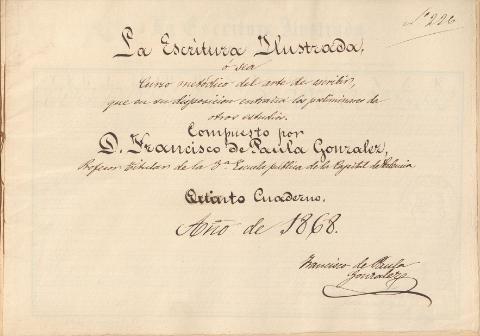 Nº 226
La Escritura Ilustrada,
ó sea
Curso metódico del arte de escribir,
que en su disposicion entraña los preliminares de
otros estudios.
Compuesto por
D. Francisco de Paula Gonzalez,
Profesor titular de la 3ª Escuela pública de la Capital de
Cuaderno.
Año de 1868.
Francisco de Paula
Gonzalez